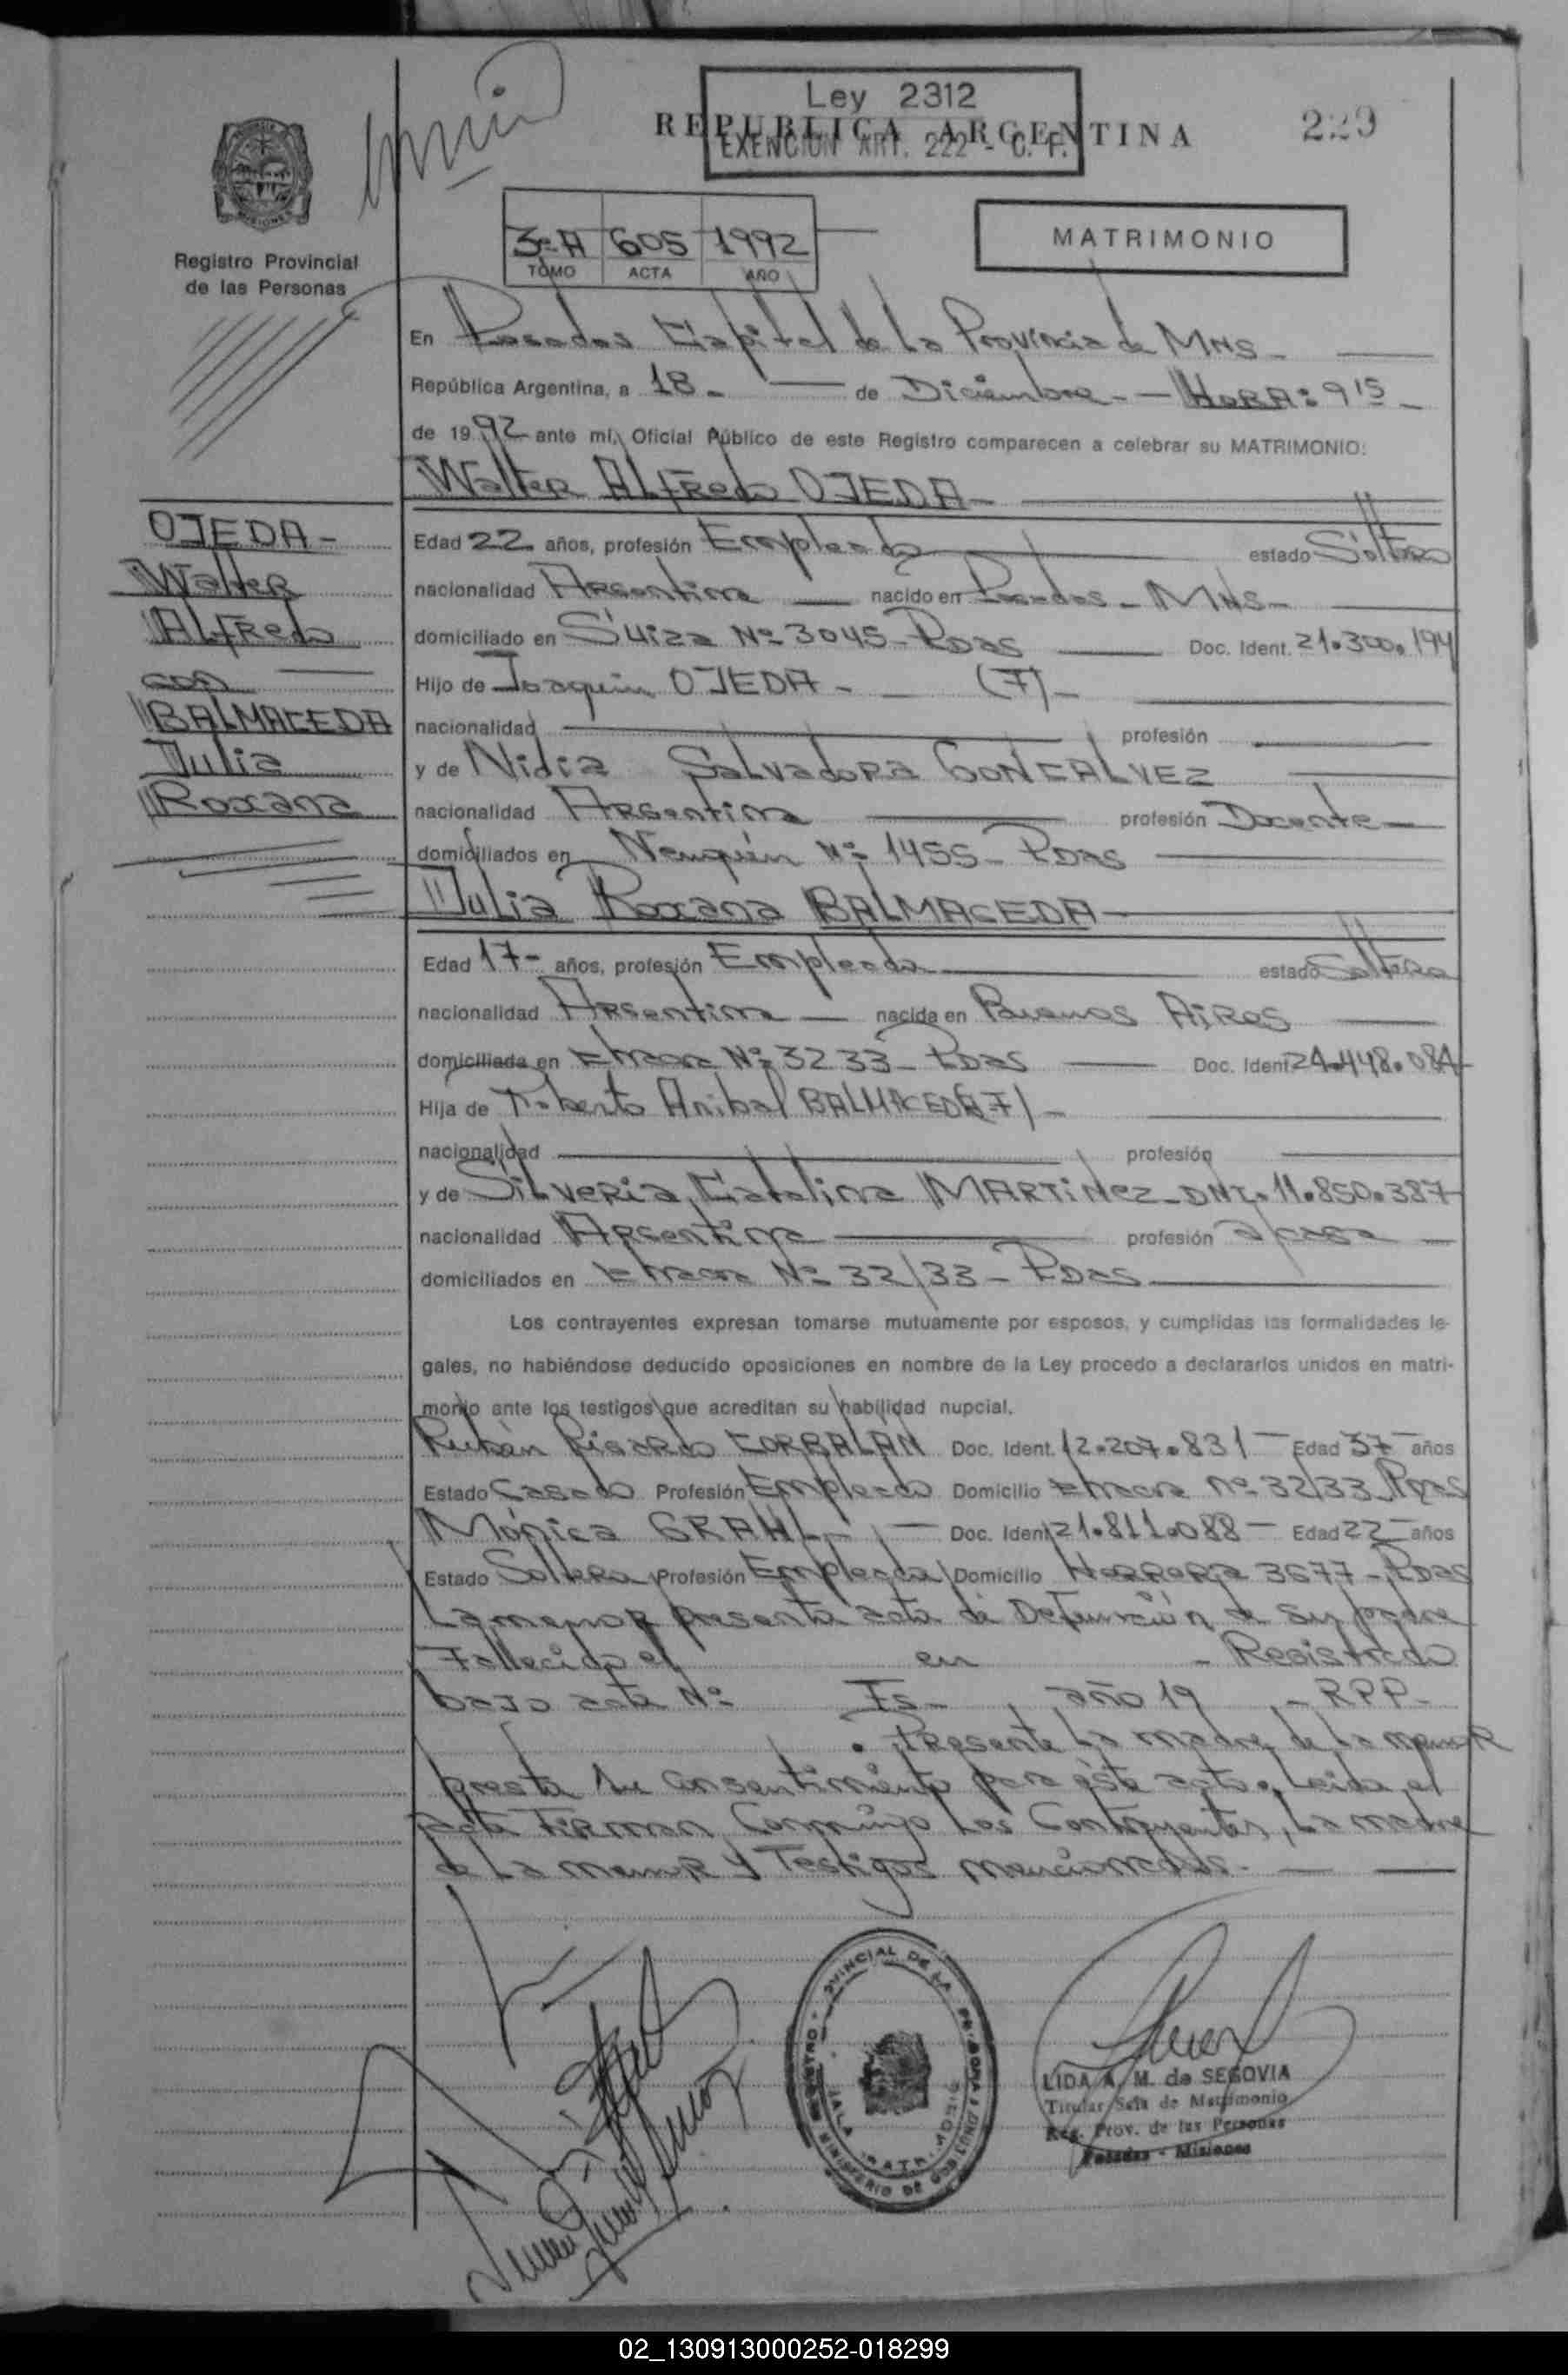 Ley 2312
REPUBLICA ARGENTINA
EXENCION ART. 222 - C. F.
229
3º A 605 1992
TOMO ACTA AÑO
MATRIMONIO
Registro Provincial
de las Personas
En Posadas Capital de la Provincia de Mns -
República Argentina, a 18 - de Diciembre - HORA: 9 15 -
de 1992 ante mí, Oficial Público de este Registro comparecen a celebrar su MATRIMONIO:
Walter Alfredo OJEDA -
OJEDA -
Walter
Alfredo
con
BALMACEDA
Julia
Roxana
Edad 22 años, profesión Empleado estado Soltero
nacionalidad Argentina nacido en Posadas - Mns -
domiciliado en Suiza Nº 3045 - Pdas Doc. Ident. 21.300.194
Hijo de Joaquin OJEDA - (F) -
nacionalidad profesión
y de Nidia Salvadora GONCALVEZ
nacionalidad Argentina profesión Docente
domiciliados en Neuquén Nº 1455 - Pdas
Julia Roxana BALMACEDA
Edad 17 - años, profesión Empleada estado Soltera
nacionalidad Argentina nacida en Buenos Aires
domiciliada en Nº 3233 - Pdas Doc. Ident. 24.448.084
Hija de Roberto Anibal BALMACEDA (F) -
nacionalidad profesión
y de Silveria Catalina MARTiNez - DNI. 11.850.387
nacionalidad Argentina profesión
domiciliados en Nº 32/33 - Pdas
Los contrayentes expresan tomarse mutuamente por esposos, y cumplidas las formalidades le-
gales, no habiéndose deducido oposiciones en nombre de la Ley procedo a declararlos unidos en matri-
monio ante los testigos que acreditan su habilidad nupcial.
Rubén Ricardo CORBALAN Doc. Ident. 12.207.831 Edad 37 años
Estado Casado Profesión Empleado Domicilio Nº 32/33 Pdas
Mónica GRAHL - Doc. Ident. 21.811.088 - Edad 22 años
Estado Soltera Profesión Empleada Domicilio Herrera 3677 - Pdas
La menor presenta acta de Defunción de su padre
Fallecido el en - Registrado
bajo acta Nº Fs - , año 19 - RPP -
. Presente la madre de la menor
presta su consentimiento para éste acto. Leida el
acta Firman Conmigo Los Contrayentes, La madre
de La menor y Testigos mencionados. -
LIDA A. M. de SEGOVIA
Titular Sala de Matrimonio
Reg. Prov. de las Personas
Posadas - Misiones
02_130913000252-018299